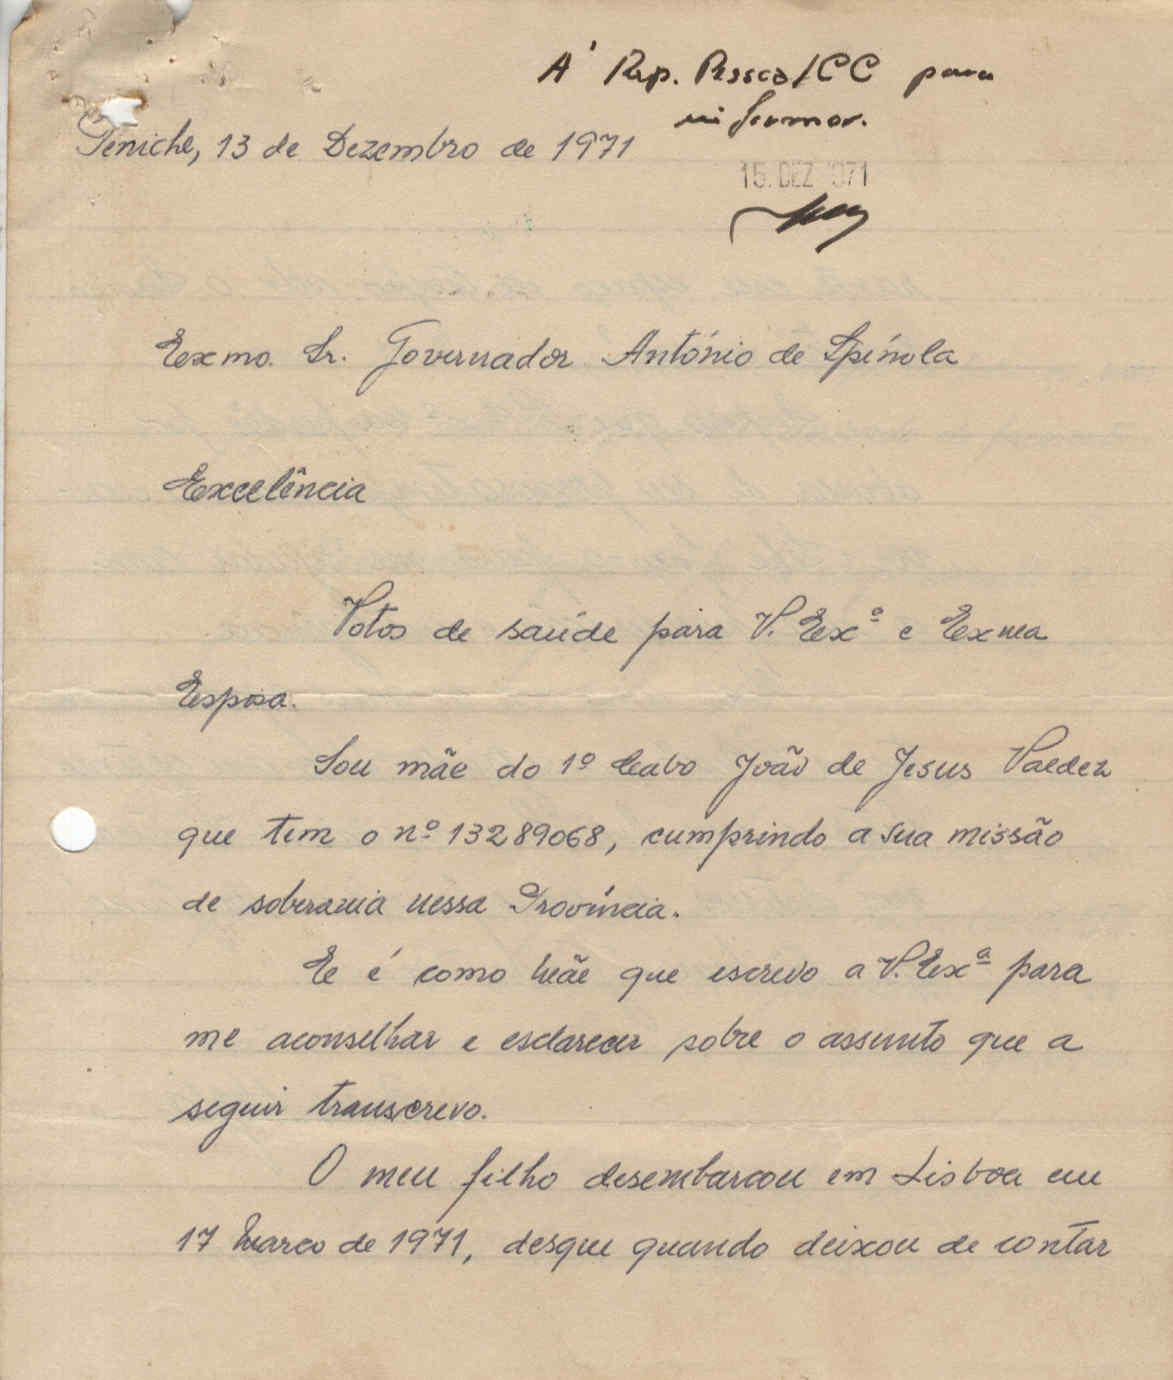 A' Rep. Pessoal/CC para
informar.
Peniche, 13 de Dezembro de 1971
15. DEZ 1971
Exmo. Sr. Governador António de Spínola
Excelência
Votos de saúde para V. Exª e Exma
Esposa.
Sou mãe do 1º Cabo João de Jesus Valdez
que tem o nº 13289068, cumprindo a sua missão
de soberania nessa Província.
E é como Mãe que escrevo a V. Exª para
me aconselhar e esclarecer sobre o assunto que a
seguir transcrevo.
O meu filho desembarcou em Lisboa em
17 Março de 1971, desque quando deixou de contar